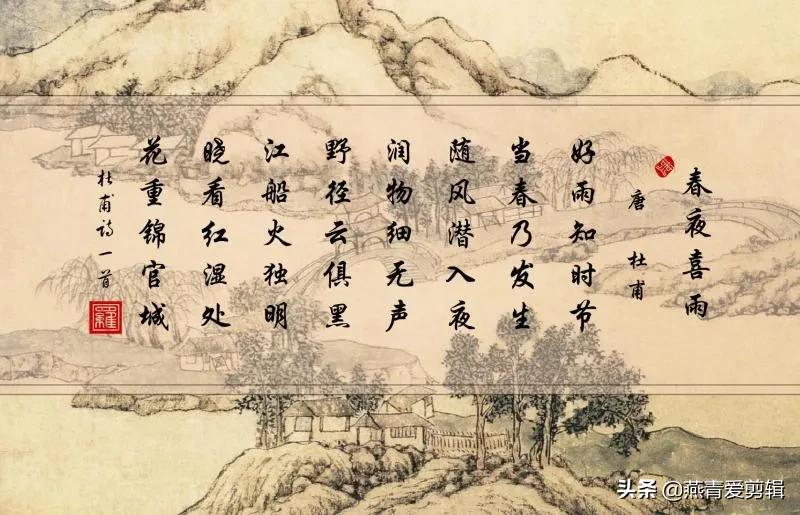 春夜喜雨
唐 杜甫
好雨知时节
当春乃发生
随风潜入夜
润物细无声
野径云俱黑
江船火独明
晓看红湿处
花重锦官城
杜甫诗一首
羅
头条 @燕青爱剪辑